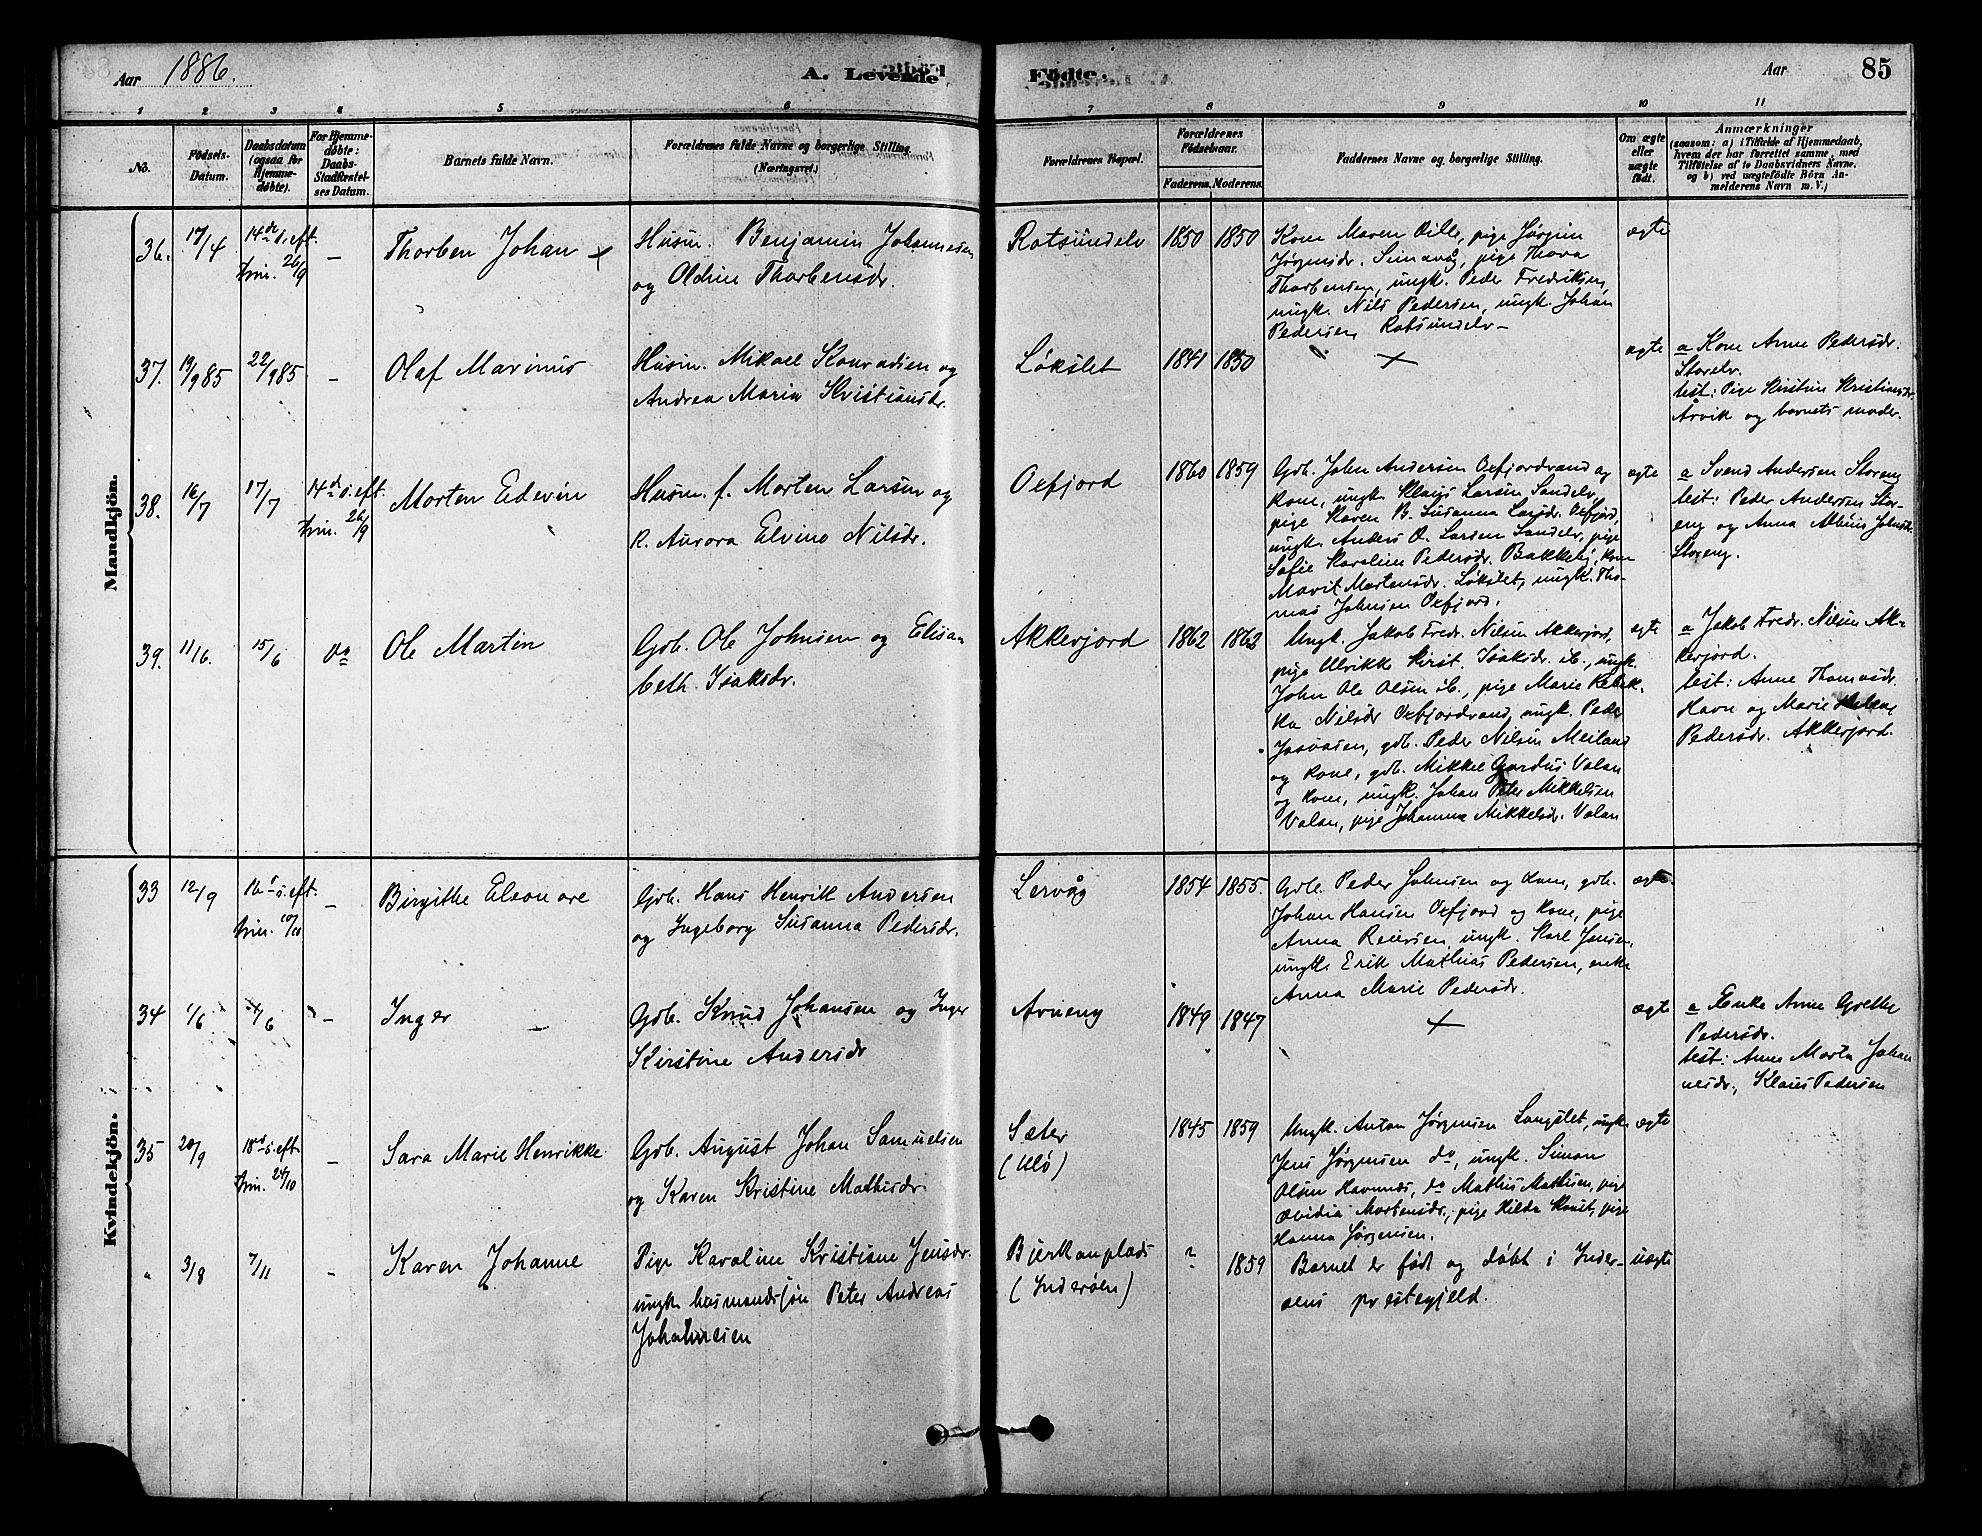 Aar 1886.
A. Levende
Fødte.
Aar
85
1 2 3 4 5 6 7 8 9 10 11
No.
Fødsels-
Datum.
Daabsdatum
(ogsaa for
Hjemme-
døbte).
For Hjemme-
døbte:
Daabs-
Stadfæstel-
ses Datum.
Barnets fulde Navn.
Forældrenes fulde Navne og borgerlige Stilling.
(Næringsvei.)
Forældrenes Bopæl.
Forældrenes
Fødselsaar.
Faderens. Moderens.
Faddernes Navne og borgerlige Stilling.
Om ægte
eller
uægte
født.
Anmærkninger
(saasom: a) i Tilfælde af Hjemmedaab,
hvem der har forrettet samme, med
Tilføielse af to Daabsvidners Navne.
og b) ved uægtefødte Børn An-
melderens Navn m. V.)
Mandkjøn.
36.
17/4
14de s. eft.
trin. 26/9
–
Thorben Johan x
Husm. Benjamin Johannesen
og Oldine Thorbensdr.
Rotsundelv
1850 1850
Kone Maren Dille, pige Jørgine
Jørgensdr. Simavåg, pige Thora
Thorbensen, ungk. Peder Fredriksen,
ungk. Nils Pedersen, ungk. Johan
Pedersen Rotsundelv –
ægte
37.
19/9 85
22/9 85
–
Olaf Marinus
Husm. Mikael Konradsen og
Andrea Maria Kristiansdr.
Løkslet
1841 1850
+
ægte
a Kone Anne Pedersdr.
Storelv.
test: Pige Kirstine Kristiansdr.
Årvik og barnets moder.
38.
16/7
17/7
14de s. eft.
trin. 26/9
Morten Edevin
Husm. f. Morten Larsen og
K. Aurora Elvine Nilsdr.
Oxfjord
1860 1859
Gdb. John Andersen Oxfjordvand og
kone, ungk. Klaus Larsen Sandelv,
pige Karen B. Susanna Larsdr. Oxfjord,
ungk. Anders O. Larsen Sandelv, pige
Sofie Karoline Pedersdr. Bakkeby, kone
Marit Mortensdr. Løkslet, ungk. Tho-
mas Johnsen Oxfjord.
ægte
a Svend Andersen Storeng
test: Peder Andersen Stor-
eng og Anna Albine Johnsdr.
Storeng.
39.
11/6.
15/6
do
Ole Martin
Gdb. Ole Johnsen og Elisa-
beth Isaksdr.
Akkerjord
1862 1862
Ungk. Jakob Fredr. Nilsen Akkerjord,
pige Ulrikke Kirst. Isaksdr. ib., ungk.
John Ole Olsen ib., pige Marie Rebek-
ka Nilsdr Oxfjordvand, ungk. Peder
Josvasen, gdb. Peder Nilsen Meiland
og kone, gdb. Mikkel Gardus Valan
og kone, ungk. Johan Peter Mikkelsen
Valan, pige Johanna Mikkelsdr. Valan
ægte
a Jakob Fredr. Nilsen Ak-
kerjord.
test: Anne Thomasdr.
Havn og Marie Helene
Pedersdr. Akkerjord.
Kvindekjøn.
33
12/9
16de s. eft.
trin. 10/10
–
Birgithe Eleonore
Gdb. Hans Henrik Andersen
og Ingeborg Susanna Pedersdr.
Lervåg
1854 1855.
Gdb. Peder Johnsen og kone, gdb.
Johan Hansen Oxfjord og kone, pige
Anna Reiersen, ungk. Karl Jensen,
ungk. Erik Mathias Pedersen, enke
Anna Marie Pedersdr.
ægte.
34
1/6
/6
–
Inger
Gdb. Knud Johansen og Inger
Kirstine Andersdr
Arneng
1849 1847
+
ægte
a Enke Anne Grethe
Pedersdr.
test: Anne Marta Johan
nesdr., Klaus Pedersen
35
20/9
18de s. eft.
trin. 24/10
–
Sara Marie Henrikke
Gdb. August Johan Samuelsen
og Karen Kristine Mathisdr
Sæter
(Ulø)
1845 1859
Ungk. Anton Jørgensen Langslet, ungk.
Jens Jørgensen do, ungk. Simon
Olsen Havnnes, do Mathis Mathisen, pige
Ovidia Mortensdr., pige Hilda Koust, pige
Hanna Jørgensen.
ægte
"
3/8
7/11
–
Karen Johanne
Pige Karoline Kristiane Jensdr.
ungk. husmandssøn Peter Andreas
Johannesen
Bjerkanplads
(Inderøen)
? 1859
Barnet er født og døbt i Inder-
øens prestegjeld.
uægte